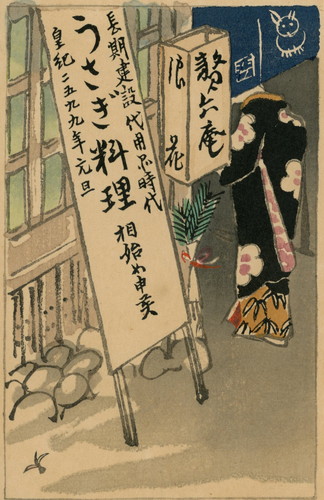 贅六庵
浪花
長期建設代用品時代
うさぎ料理 相始め申候
皇紀二五九九年元旦